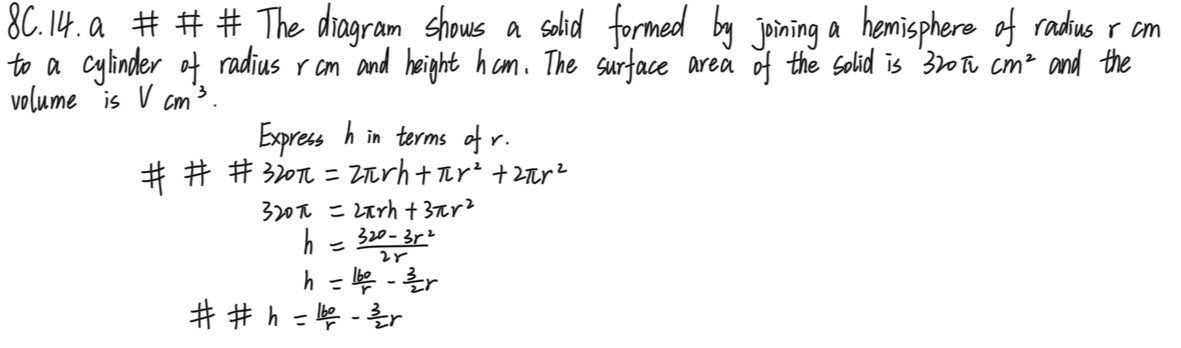 8C.14.a # # # The diagram shows a solid formed by joining a hemisphere of radius r cm
to a cylinder of radius r cm and height h cm. The surface area of the solid is 320π cm² and the
volume is V cm³.
Express h in terms of r.
# # # 320π = 2πrh + πr² + 2πr²
320π = 2πrh + 3πr²
h = \frac{320 - 3r²}{2r}
h = \frac{160}{r} - \frac{3}{2}r
# # h = \frac{160}{r} - \frac{3}{2}r